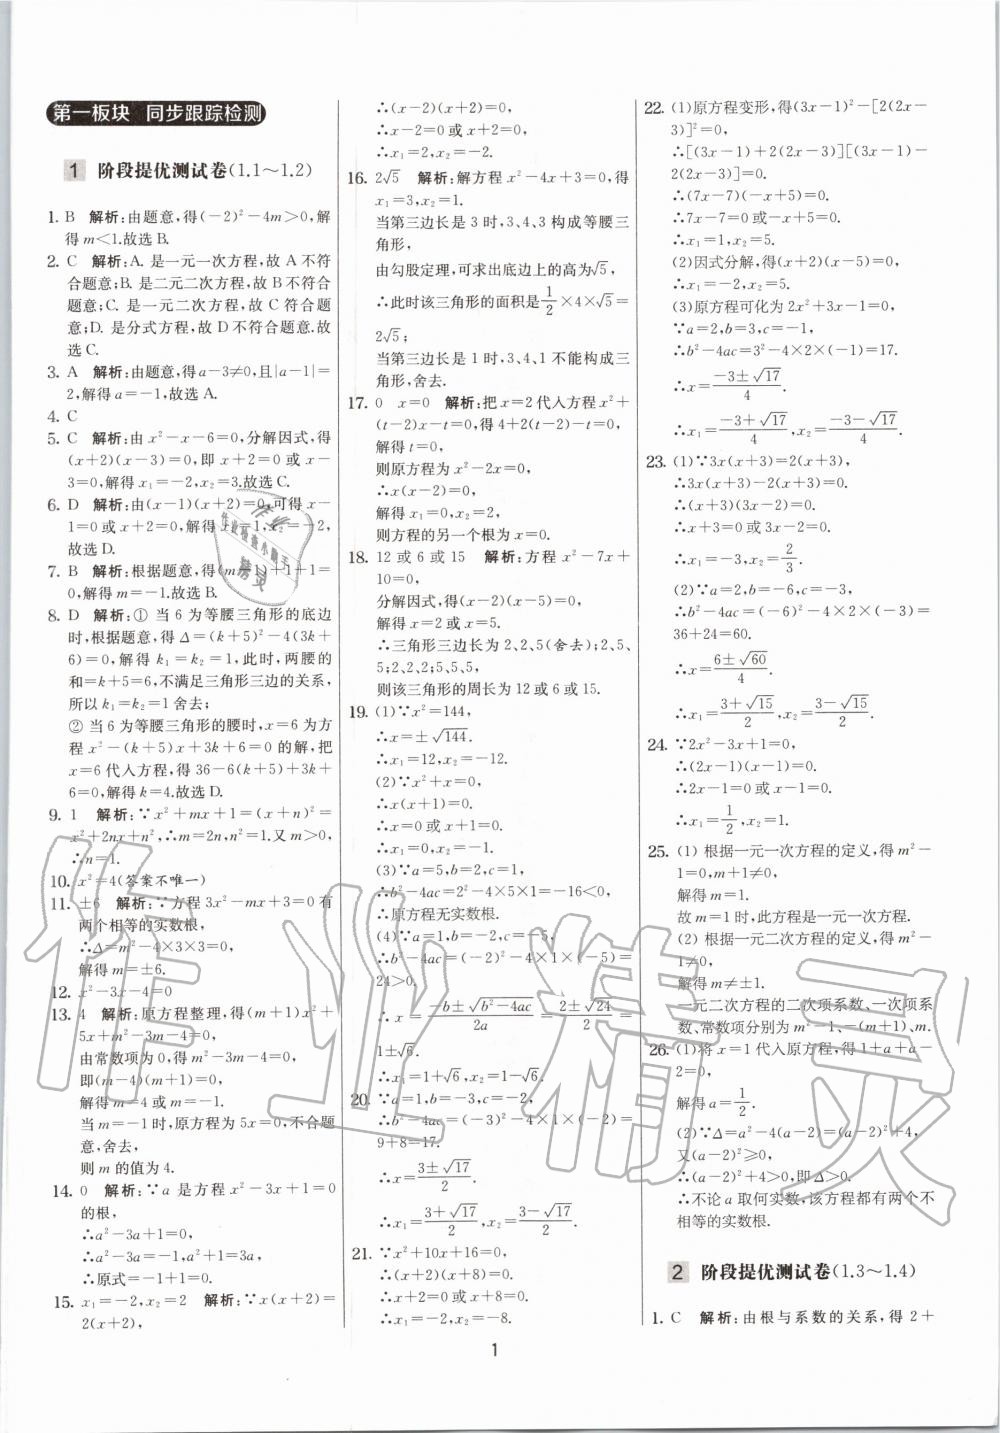 第一板块 同步跟踪检测
1 阶段提优测试卷(1.1～1.2)
1. B 解析:由题意,得(-2)²-4m>0,解
得m<1.故选B.
2. C 解析:A. 是一元一次方程,故A不符
合题意;B. 是二元二次方程,故B不符合
题意;C. 是一元二次方程,故C符合题
意;D. 是分式方程,故D不符合题意.故
选C.
3. A 解析:由题意,得a-3≠0,且|a-1|=
2,解得a=-1,故选A.
4. C
5. C 解析:由x²-x-6=0,分解因式,得
(x+2)(x-3)=0,即x+2=0或x-
3=0,解得x₁=-2,x₂=3.故选C.
6. D 解析:由(x-1)(x+2)=0,可得x-
1=0或x+2=0,解得x₁=1,x₂=-2,
故选D.
7. B 解析:根据题意,得(m-1)+1+1=
0,解得m=-1.故选B.
8. D 解析:① 当6为等腰三角形的底边
时,根据题意,得Δ=(k+5)²-4(3k+
6)=0,解得k₁=k₂=1,此时,两腰的
和=k+5=6,不满足三角形三边的关系,
所以k₁=k₂=1舍去;
② 当6为等腰三角形的腰时,x=6为方
程x²-(k+5)x+3k+6=0的解,把
x=6代入方程,得36-6(k+5)+3k+
6=0,解得k=4.故选D.
9. 1 解析:∵x²+mx+1=(x+n)²=
x²+2nx+n²,∴m=2n,n²=1.又m>0,
∴n=1.
10. x²=4(答案不唯一)
11. ±6 解析:∵方程3x²-mx+3=0有
两个相等的实数根,
∴Δ=m²-4×3×3=0,
解得m=±6.
12. x²-3x-4=0
13. 4 解析:原方程整理,得(m+1)x²+
5x+m²-3m-4=0,
由常数项为0,得m²-3m-4=0,
即(m-4)(m+1)=0,
解得m=4或m=-1.
当m=-1时,原方程为5x=0,不合题
意,舍去,
则m的值为4.
14. 0 解析:∵a是方程x²-3x+1=0
的根,
∴a²-3a+1=0,
∴a²-3a=-1,a²+1=3a,
∴原式=-1+1=0.
15. x₁=-2,x₂=2 解析:∵x(x+2)=
2(x+2),
∴(x-2)(x+2)=0,
∴x-2=0或x+2=0,
∴x₁=2,x₂=-2.
16. 2√5 解析:解方程x²-4x+3=0,得
x₁=3,x₂=1.
当第三边长是3时,3、4、3构成等腰三
角形,
由勾股定理,可求出底边上的高为√5,
∴此时该三角形的面积是1/2×4×√5=
2√5;
当第三边长是1时,3、4、1不能构成三
角形,舍去.
17. 0 x=0 解析:把x=2代入方程x²+
(t-2)x-t=0,得4+2(t-2)-t=0,
解得t=0,
则原方程为x²-2x=0.
∴x(x-2)=0,
解得x₁=0,x₂=2,
则方程的另一个根为x=0.
18. 12或6或15 解析:方程x²-7x+
10=0,
分解因式,得(x-2)(x-5)=0,
解得x=2或x=5.
∴三角形三边长为2、2、5(舍去);2、5、
5;2、2、2;5、5、5,
则该三角形的周长为12或6或15.
19. (1)∵x²=144,
∴x=±√144.
∴x₁=12,x₂=-12.
(2)∵x²+x=0,
∴x(x+1)=0.
∴x=0或x+1=0.
∴x₁=0,x₂=-1.
(3)∵a=5,b=2,c=1,
∴b²-4ac=2²-4×5×1=-16<0,
∴原方程无实数根.
(4)∵a=1,b=-2,c=-5,
∴b²-4ac=(-2)²-4×1×(-5)=
24>0.
∴x=(-b±√(b²-4ac))/2a=(2±√24)/2=
1±√6.
∴x₁=1+√6,x₂=1-√6.
20. ∵a=1,b=-3,c=-2,
∴b²-4ac=(-3)²-4×1×(-2)=
9+8=17.
∴x=(3±√17)/2.
∴x₁=(3+√17)/2,x₂=(3-√17)/2.
21. ∵x²+10x+16=0,
∴(x+2)(x+8)=0,
∴x+2=0或x+8=0.
∴x₁=-2,x₂=-8.
22. (1)原方程变形,得(3x-1)²-[2(2x-
3)]²=0,
∴[(3x-1)+2(2x-3)][(3x-1)-
2(2x-3)]=0.
∴(7x-7)(-x+5)=0.
∴7x-7=0或-x+5=0.
∴x₁=1,x₂=5.
(2)因式分解,得(x+2)(x-5)=0,
∴x₁=-2,x₂=5.
(3)原方程可化为2x²+3x-1=0,
∵a=2,b=3,c=-1,
∴b²-4ac=3²-4×2×(-1)=17.
∴x=(-3±√17)/4.
∴x₁=(-3+√17)/4,x₂=(-3-√17)/4.
23. (1)∵3x(x+3)=2(x+3),
∴3x(x+3)-2(x+3)=0.
∴(x+3)(3x-2)=0.
∴x+3=0或3x-2=0.
∴x₁=-3,x₂=2/3.
(2)∵a=2,b=-6,c=-3,
∴b²-4ac=(-6)²-4×2×(-3)=
36+24=60.
∴x=(6±√60)/4.
∴x₁=(3+√15)/2,x₂=(3-√15)/2.
24. ∵2x²-3x+1=0,
∴(2x-1)(x-1)=0.
∴2x-1=0或x-1=0.
∴x₁=1/2,x₂=1.
25. (1) 根据一元一次方程的定义,得m²-
1=0,m+1≠0,
解得m=1.
故m=1时,此方程是一元一次方程.
(2) 根据一元二次方程的定义,得m²-
1≠0,
解得m≠±1.
一元二次方程的二次项系数、一次项系
数、常数项分别为m²-1、-(m+1)、m.
26. (1)将x=1代入原方程,得1+a+a-
2=0,
解得a=1/2.
(2)∵Δ=a²-4(a-2)=(a-2)²+4,
又(a-2)²≥0,
∴(a-2)²+4>0,即Δ>0.
∴不论a取何实数,该方程都有两个不
相等的实数根.
2 阶段提优测试卷(1.3～1.4)
1. C 解析:由根与系数的关系,得2+
1
作业精灵
作业检查小助手
精灵